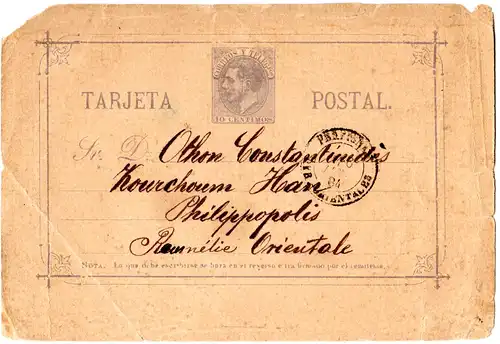 CORREOS Y TELEGFOS
10 CENTIMOS
TARJETA POSTAL.
Sr. D. Othon Constantinidis
Kourchoum Han
Philippopolis
Roumélie Orientale
84
ORIENTALES
NOTA. Lo que debe escribirse se hará en el reverso e irá firmado por el remitente.